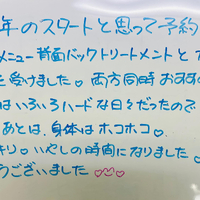 年のスタートと思って予約
メニュー背面バックトリートメントと
を受けました♡ 両方同時おすす
はいろいろハードな日々だったので
あとは、身体はホコホコ♡
キリ♡ いやしの時間になりました♡
うございました♡♡♡